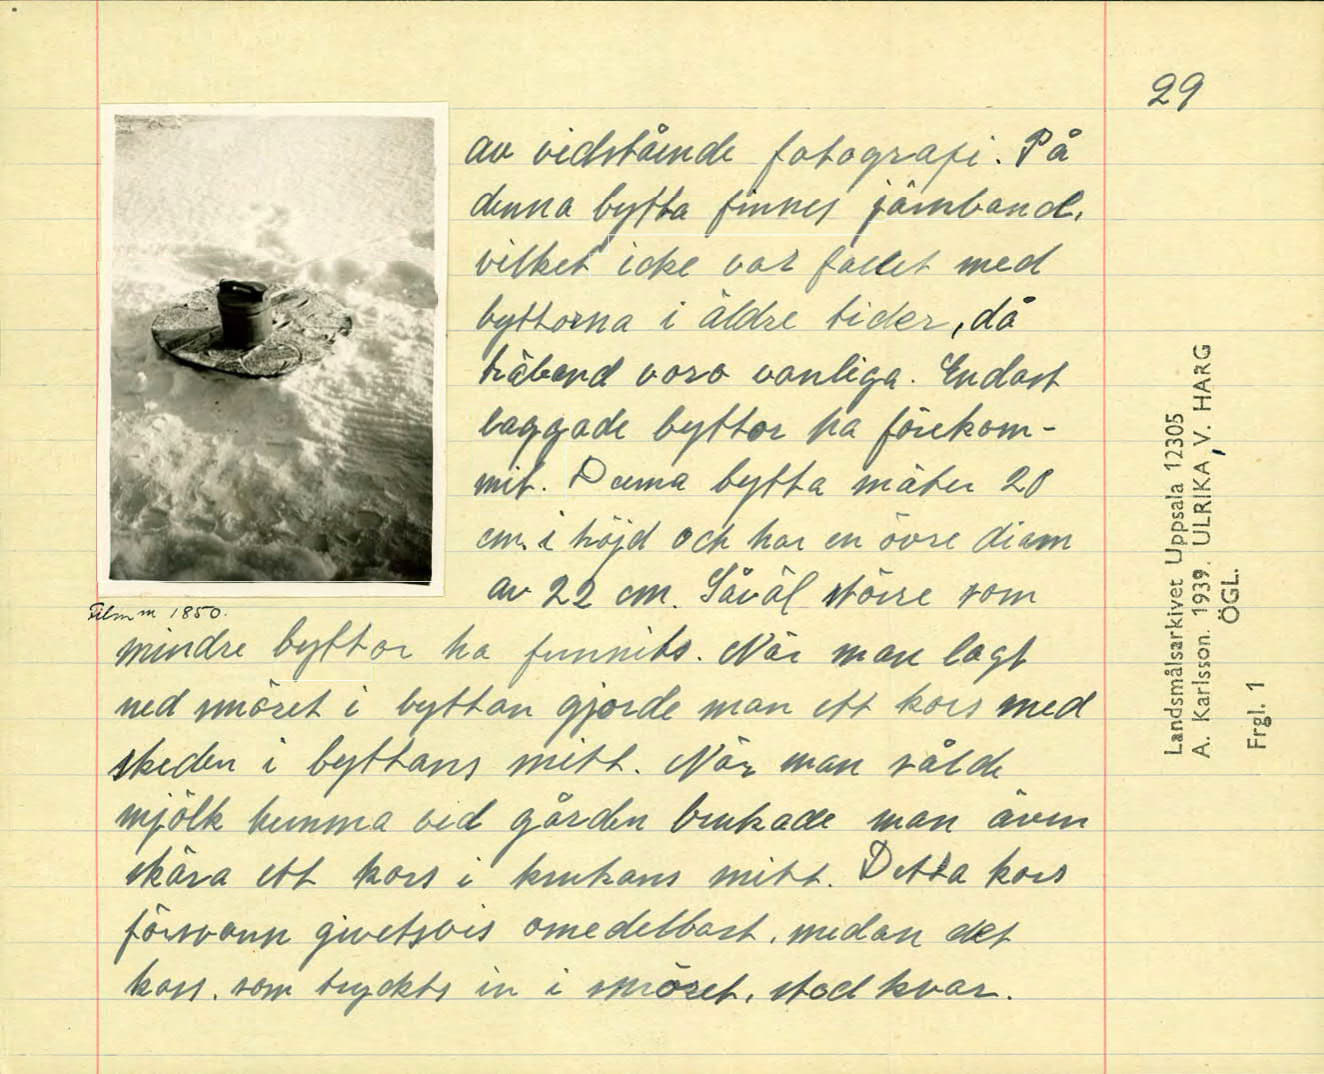 29
av vidstående fotografi. På
denna bytta finnes järnband,
vilket icke var fallet med
byttorna i äldre tider, då
träband voro vanliga. Endast
laggade byttor ha förekom-
mit. Denna bytta mäter 20
cm. i höjd och har en övre diam
av 22 cm. Såväl större som
Film m 1850.
mindre byttor ha funnits. När man lagt
ned smöret i byttan gjorde man ett kors med
skeden i byttans mitt. När man sålde
mjölk hemma vid gården brukade man även
skära ett kors i krukans mitt. Detta kors
försvann givetsvis omedelbart, medan det
kors, som tryckts in i smöret, stod kvar.
Landsmålsarkivet Uppsala 12305
A. Karlsson. 1939. ULRIKA, V. HARG
ÖGL.
Frgl. 1